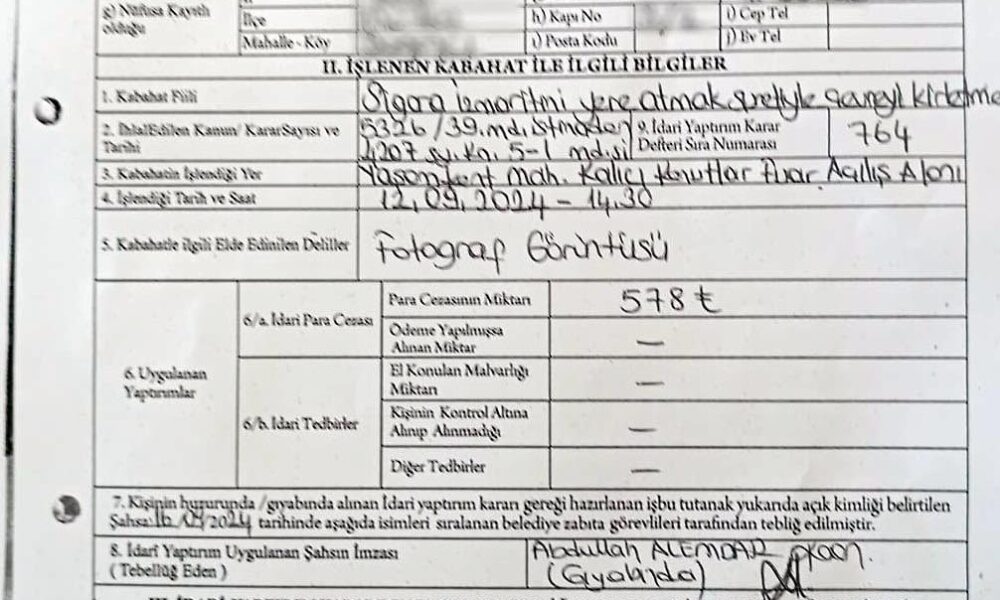 g) Nüfusa Kayıtlı olduğu
İlçe
h) Kapı No
i) Cep Tel
Mahalle - Köy
ı) Posta Kodu
j) Ev Tel
II. İŞLENEN KABAHAT İLE İLGİLİ BİLGİLER
1. Kabahat Fiili
Sigara izmaritini yere atmak suretiyle çevreyi kirletme
2. İhlalEdilen Kanun/ KararSayısı ve Tarihi
5326/39.md.istinaden
4207 sy.Ka. 5-1 md.si
9. İdari Yaptırım Karar Defteri Sıra Numarası
764
3. Kabahatin İşlendiği Yer
Yaşamkent mah. Kalıcı Konutlar Fuar Açılış Alanı
4. İşlendiği Tarih ve Saat
12.09.2024 - 14.30
5. Kabahatle ilgili Elde Edinilen Deliller
Fotograf Görüntüsü
6. Uygulanan Yaptırımlar
6/a. İdari Para Cezası
Para Cezasının Miktarı
578 ₺
Ödeme Yapılmışsa Alınan Miktar
—
6/b. İdari Tedbirler
El Konulan Malvarlığı Miktarı
—
Kişinin Kontrol Altına Alınıp Alınmadığı
—
Diğer Tedbirler
—
7. Kişinin huzurunda /gıyabında alınan İdari yaptırım kararı gereği hazırlanan işbu tutanak yukarıda açık kimliği belirtilen
Şahsa: 16/09/2024 tarihinde aşağıda isimleri sıralanan belediye zabıta görevlileri tarafından tebliğ edilmiştir.
8. İdarî Yaptırım Uygulanan Şahsın İmzası
( Tebellüğ Eden )
Abdullah ALEMDAR
(Gıyabında)